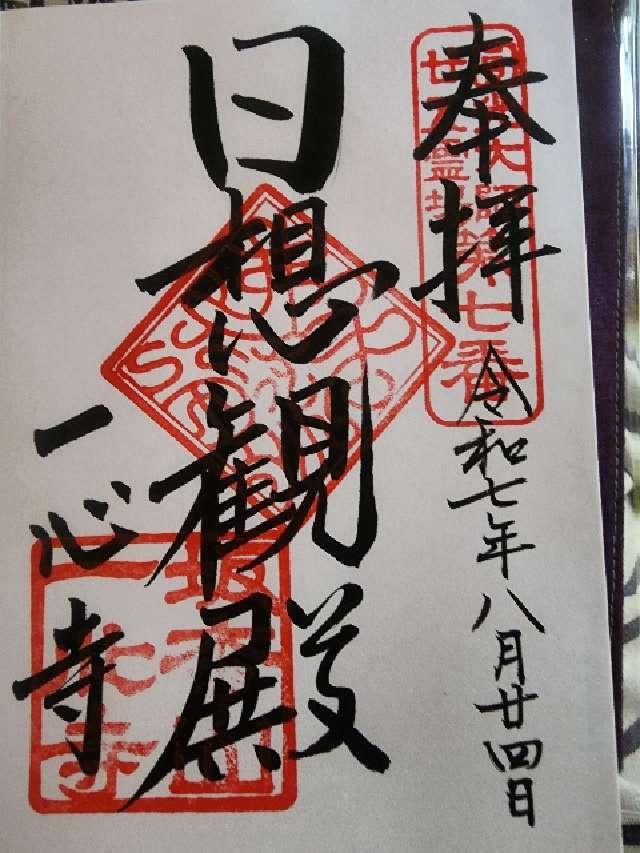 奉拝
令和七年八月廿四日
圓光大師第七番
廿五霊場
日想観殿
一心寺
坂松山
一心寺